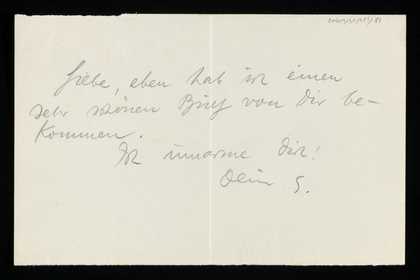 Liebe, eben hab ich einen
sehr schönen Brief von Dir be-
kommen.
Ich umarme Dich!
Dein S.